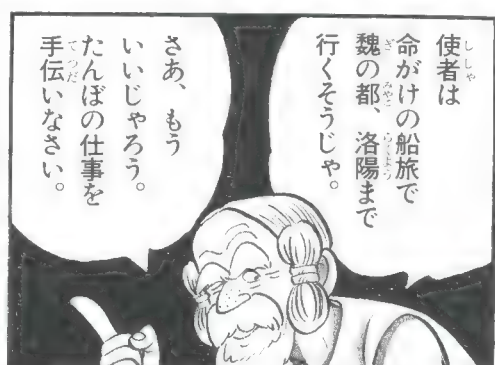 使者は
命がけの船旅で
魏の都、洛陽まで
行くそうじゃ。
さあ、もう
いいじゃろう。
たんぼの仕事を
手伝いなさい。